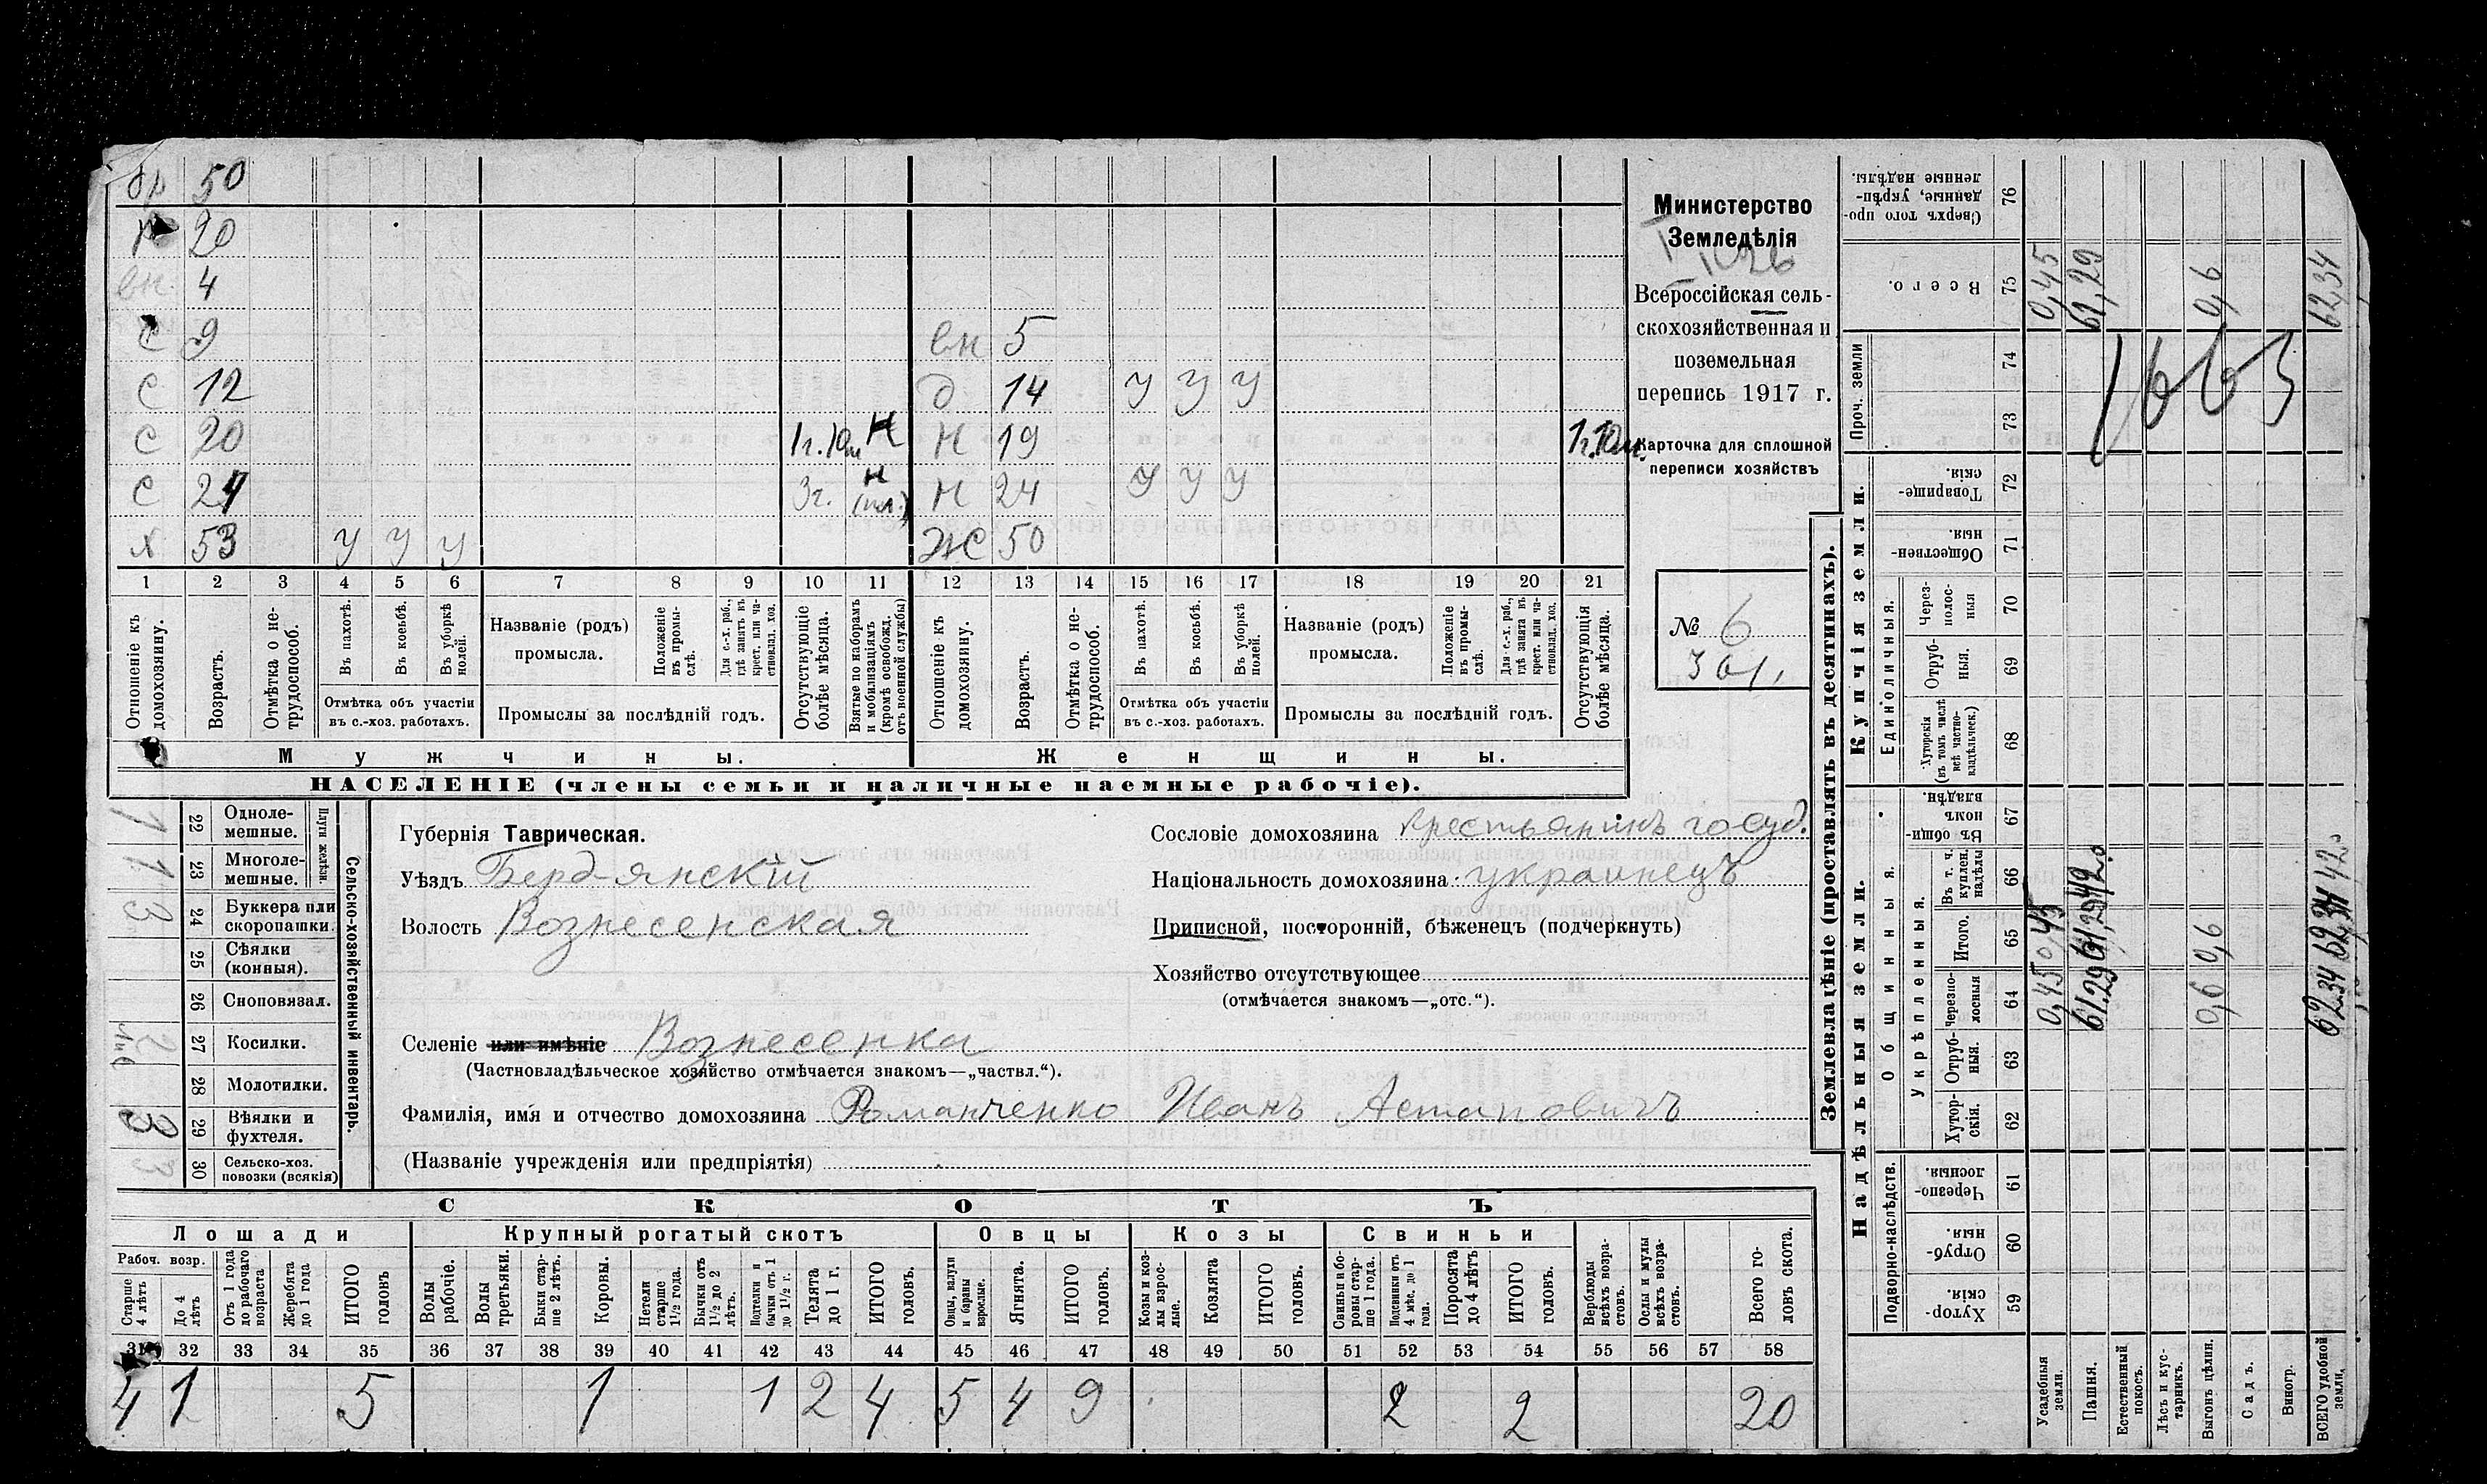 бр 50
20
вн. 4
с 9 вн 5
с 12 д 14 у у у
с 20 1г.10м н н 19 1г.10м.
с 24 3г. н (пл.) н 24 у у у
х 53 у у у ж 50
1 2 3 4 5 6 7 8 9 10 11 12 13 14 15 16 17 18 19 20 21
Отношеніе къ домохозяину.
Возрастъ.
Отмѣтка о не-трудоспособ.
Въ пахотѣ.
Въ косьбѣ.
Въ уборкѣ полей.
Отмѣтка объ участіи
въ с.-хоз. работахъ.
Названіе (родъ)
промысла.
Положеніе въ промы-слѣ.
Для с.-х. раб., гдѣ занятъ въ крест. или ча-стновлад. хоз.
Промыслы за послѣдній годъ.
Отсутствующіе болѣе мѣсяца.
Взятые по наборамъ и мобилизаціямъ (кромѣ освобожд. отъ военной службы)
Отношеніе къ домохозяину.
Возрастъ.
Отмѣтка о не-трудоспособ.
Въ пахотѣ.
Въ косьбѣ.
Въ уборкѣ полей.
Отмѣтка объ участіи
въ с.-хоз. работахъ.
Названіе (родъ)
промысла.
Положеніе въ промы-слѣ.
Для с.-х. раб., гдѣ занята въ крест. или ча-стновлад. хоз.
Промыслы за послѣдній годъ.
Отсутствующія болѣе мѣсяца.
Мужчины. Женщины.
НАСЕЛЕНІЕ (члены семьи и наличные наемные рабочіе).
Министерство
Земледѣлія
Всероссійская сель-
скохозяйственная и
поземельная
перепись 1917 г.
Карточка для сплошной
переписи хозяйствъ
№ 6
301,
Сельско-хозяйственный инвентарь.
Плуги желѣзн.
1 22 Одноле-мешные.
1 23 Многоле-мешные.
3 24 Буккера или скоропашки.
25 Сѣялки (конныя).
26 Сноповязал.
27 Косилки.
28 Молотилки.
3 29 Вѣялки и фухтеля.
3 30 Сельско-хоз. повозки (всякія)
Губернія Таврическая.
Уѣздъ Бердянскій
Волость Вознесенская
Селеніе или имѣніе Вознесенка
(Частновладѣльческое хозяйство отмѣчается знакомъ—„частвл.“).
Фамилія, имя и отчество домохозяина Романченко Иванъ Астаповичъ
(Названіе учрежденія или предпріятія)
Сословіе домохозяина крестьянинъ госуд.
Національность домохозяина украинецъ
Приписной, посторонній, бѣженецъ (подчеркнуть)
Хозяйство отсутствующее
(отмѣчается знакомъ—„отс.“).
СКОТЪ
Лошади Крупный рогатый скотъ Овцы Козы Свиньи
Рабоч. возр.
Старше 4 лѣтъ
До 4 лѣтъ
Отъ 1 года до рабочаго возраста
Жеребята до 1 года
ИТОГО головъ
Волы рабочіе.
Волы третьяки.
Быки стар-ше 2 лѣтъ.
Коровы.
Нетели старше 1½ года.
Бычки отъ 1½ до 2 лѣтъ.
Подтелки и бычки отъ 1 до 1½ г.
Телята до 1 г.
ИТОГО головъ.
Овцы, валухи и бараны взрослые.
Ягнята.
ИТОГО головъ.
Козы и коз-лы взрос-лые.
Козлята
ИТОГО головъ.
Свиньи и бо-ровы стар-ше 1 года.
Подсвинки отъ 4 мѣс. до 1 года.
Поросята до 4 лѣтъ
ИТОГО головъ.
Верблюды всѣхъ возра-стовъ.
Ослы и мулы всѣхъ возра-стовъ.
Всего го-ловъ скота.
31 32 33 34 35 36 37 38 39 40 41 42 43 44 45 46 47 48 49 50 51 52 53 54 55 56 57 58
4 1 5 1 1 2 4 5 4 9 2 2 20
Землевладѣніе (проставлять въ десятинахъ).
Надѣльныя земли. Купчія земли. Проч. земли
Подворно-наслѣдств. Общинныя. Единоличныя.
Укрѣпленныя.
Хутор-скія. 59
Отруб-ныя. 60
Черезпо-лосныя 61
Хутор-скія. 62
Отруб-ныя. 63
Черезпо-лосныя 64 0,45 61.29 0,6 62.34
Итого. 65 0,45 61,29 0,6 62,34
Въ т. ч. куплен. надѣлы 66 42.0 42.0
Въ общи-номъ владѣн. 67
Хуторскія (въ томъ числѣ всѣ частно-владѣльческ.) 68
Отруб-ныя. 69
Через-полос-ныя 70
Обществен-ныя 71
Товарище-скія. 72
73
74
Всего. 75 0,45 61,29 0,6 62,34
Сверхъ того про-данные, укрѣп-ленные надѣлы. 76
1663
Усадебныя земли.
Пашня.
Естественный покосъ.
Лѣсъ и кус-тарникъ.
Выгонъ цѣлин.
Садъ.
Виногр.
ВСЕГО удобной земли.